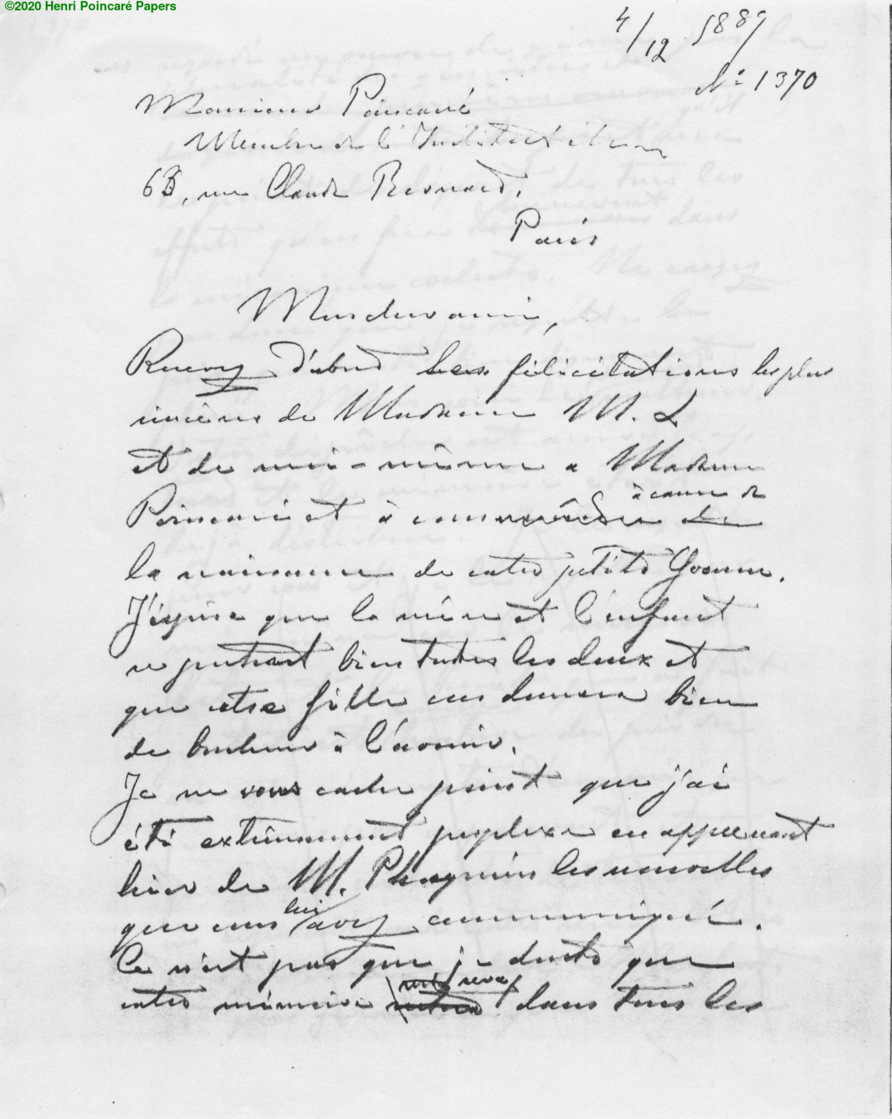 ©2020 Henri Poincaré Papers
4/12 1889
No 1370
Monsieur Poincaré
Membre de l'Institut
63, rue Claude Bernard.
Paris
Mon cher ami,
Recevez d'abord les félicitations les plus
sincères de Madame M. L
et de moi-même à Madame
à cause de
Poincaré et à
la naissance de votre petite Yvonne.
J'espère que la mère et l'enfant
se portent bien toutes les deux et
que votre fille vous donnera bien
de bonheur à l'avenir.
Je ne vous cache point que j'ai
été extrêmement perplexe en apprenant
hier de M. Phragmén les nouvelles
lui
que vous avez communiqué.
Ce n'est pas que je doute que
votre mémoire dans tous les